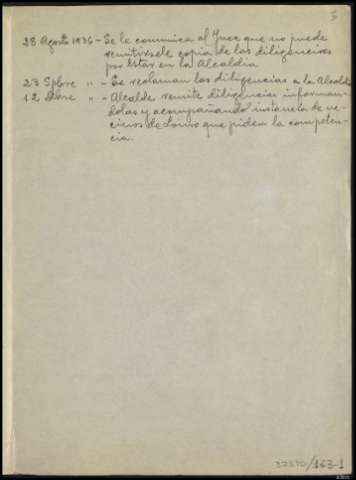 5
28 Agosto 1936 - Se le comunica al Juez que no puede
remitirsele copia de las diligencias
por estar en la Alcaldia
23 Spbre " - Se reclaman las diligencias a la Alcaldia
12 " - Alcalde remite diligencias informan-
dolas y acompañando instancia de ve-
cinos de Louro que piden la competen-
cia.
37370/163-1